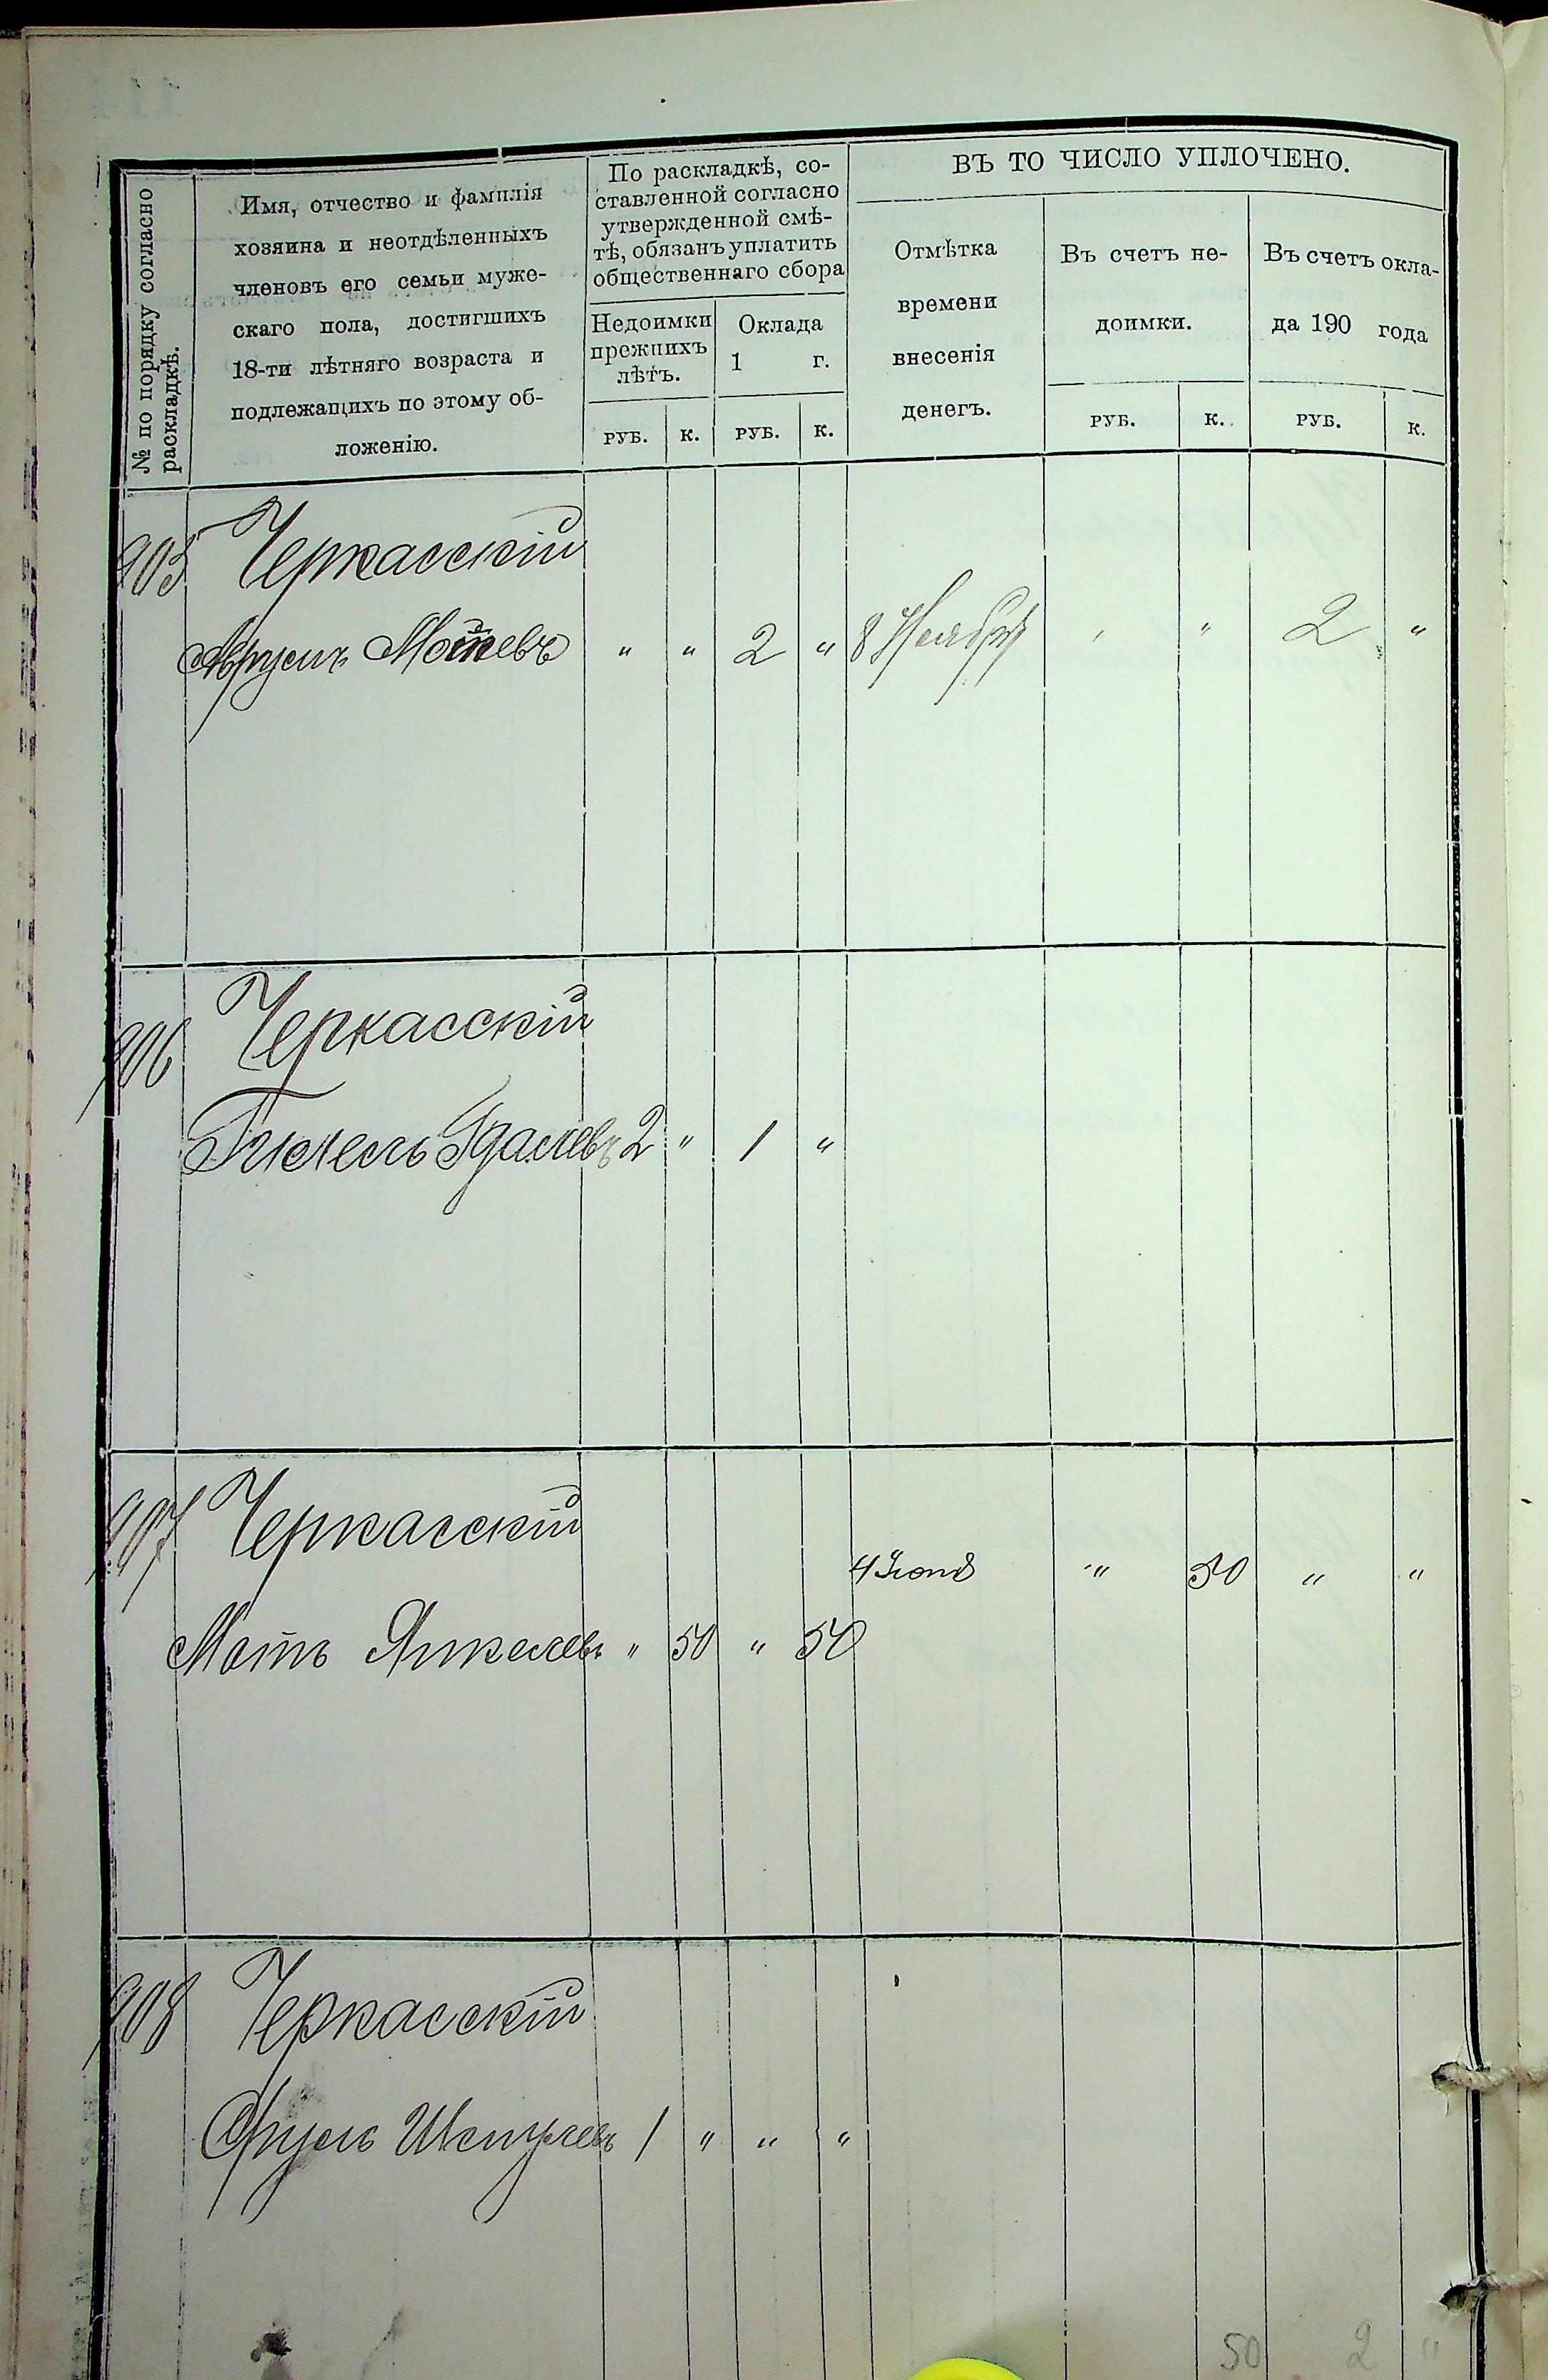 ВЪ ТО ЧИСЛО УПЛОЧЕНО.
№ по порядку согласно
раскладкѣ.
Имя, отчество и фамилія
хозяина и неотдѣленныхъ
членовъ его семьи муже-
скаго пола, достигшихъ
18-ти лѣтняго возраста и
подлежащихъ по этому об-
ложенію.
По раскладкѣ, со-
ставленной согласно
утвержденной смѣ-
тѣ, обязанъ уплатить
общественнаго сбора
Недоимки
прежнихъ
лѣтъ.
Оклада
1 г.
Отмѣтка
времени
внесенія
денегъ.
Въ счетъ не-
доимки.
Въ счетъ окла-
да 190 года
РУБ. К. РУБ. К. РУБ. К. РУБ. К.
905 Черкасскій
Аврумъ Мотевъ " " 2 " 8 Ноября " " 2 "
906 Черкасскій
Гилель Гдалевъ 2 " 1 "
907 Черкасскій
4 Іюня " 50 " "
Моть Янкелевъ " 50 " 50
908 Черкасскій
Сруль Шмулевъ 1 " " "
50 2 "